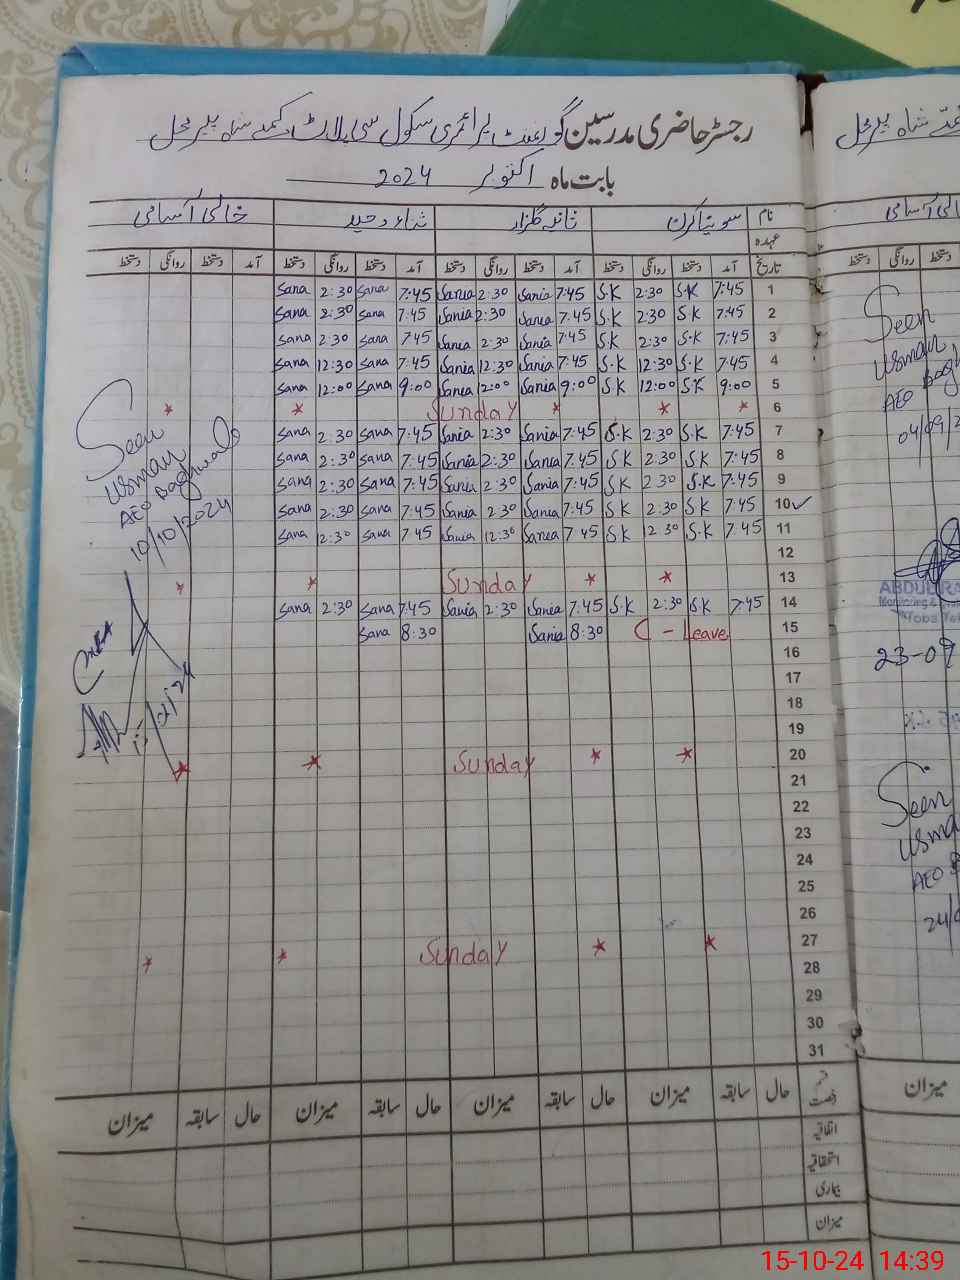 رجسٹر حاضری مدرسین گورنمنٹ پرائمری سکول سی پلاٹ شاہ پیر محل
بابت ماہ اکتوبر 2024
نام سونیا کرن ثانیہ گلزار ثناء وحید خالی آسامی
عہدہ
تاریخ آمد دستخط روانگی دستخط آمد دستخط روانگی دستخط آمد دستخط روانگی دستخط آمد دستخط روانگی دستخط
Sana 2:30 Sana 7:45 Sania 2:30 Sania 7:45 S.K 2:30 S.K 7:45 1
Sana 2:30 Sana 7:45 Sania 2:30 Sania 7:45 S.K 2:30 S.K 7:45 2
Sana 2:30 Sana 7 45 Sania 2:30 Sania 7:45 S.K 2:30 S.K 7:45 3
Sana 12:30 Sana 7:45 Sania 12:30 Sania 7:45 S.K 12:30 S.K 7:45 4
Sana 12:00 Sana 9:00 Sania 12:00 Sania 9:00 S.K 12:00 S.K 9:00 5
Sunday 6
Sana 2:30 Sana 7:45 Sania 2:30 Sania 7:45 S.K 2:30 S.K 7:45 7
Sana 2:30 Sana 7:45 Sania 2:30 Sania 7:45 S.K 2:30 S.K 7:45 8
Sana 2:30 Sana 7:45 Sania 2:30 Sania 7:45 S.K 2 30 S.K 7:45 9
Sana 2:30 Sana 7:45 Sania 2:30 Sania 7:45 S.K 2:30 S.K 7:45 10 ✓
Sana 12:30 Sana 7 45 Sania 12:30 Sania 7 45 S.K 12 30 S.K 7:45 11
12
Sunday 13
Sana 2:30 Sana 7:45 Sania 2:30 Sania 7:45 S.K 2:30 S.K 7:45 14
Sana 8:30 Sania 8:30 C - Leave 15
16
17
18
19
Sunday 20
21
22
23
24
25
26
Sunday 27
28
29
30
31
Seen
Usman
AEO Baghwala
10/10/2024
قسم رخصت حال سابقہ میزان حال سابقہ میزان حال سابقہ میزان
اتفاقیہ
استحقاقیہ
بیماری
میزان
شاہ پیر محل
خالی آسامی
دستخط روانگی دستخط
Seen
Usman
AEO Bagh
04/09/2
ABDUL RA
Monitoring &
Toba Te
23-09
Seen
Usma
AEO
24/0
میزان
15-10-24 14:39